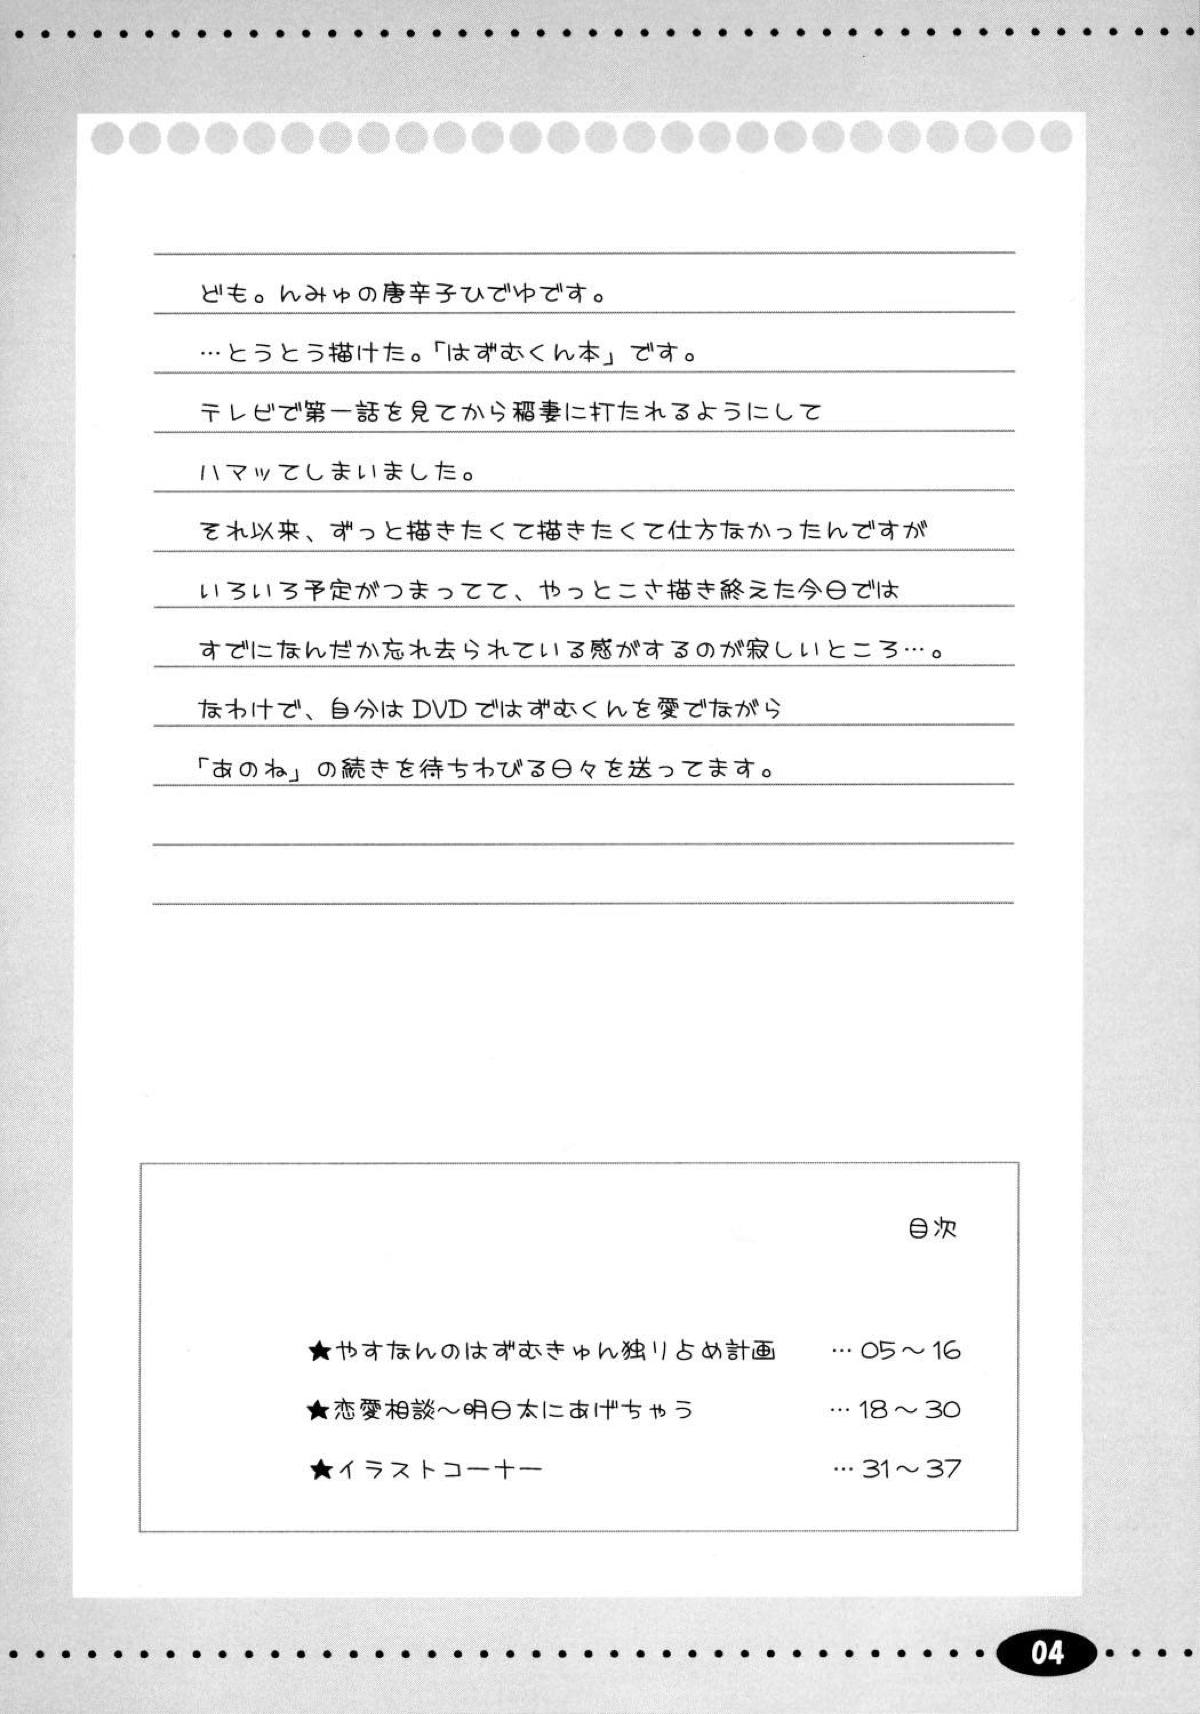 ども。んみゅの唐辛子ひでゆです。
…とうとう描けた。「はずむくん本」です。
テレビで第一話を見てから稲妻に打たれるようにして
ハマッてしまいました。
それ以来、ずっと描きたくて描きたくて仕方なかったんですが
いろいろ予定がつまってて、やっとこさ描き終えた今日では
すでになんだか忘れ去られている感がするのが寂しいところ…。
なわけで、自分はDVDではずむくんを愛でながら
「あのね」の続きを待ちわびる日々を送ってます。
目次
★やすなんのはずむきゅん独り占め計画 …05〜16
★恋愛相談〜明日太にあげちゃう …18〜30
★イラストコーナー …31〜37
04